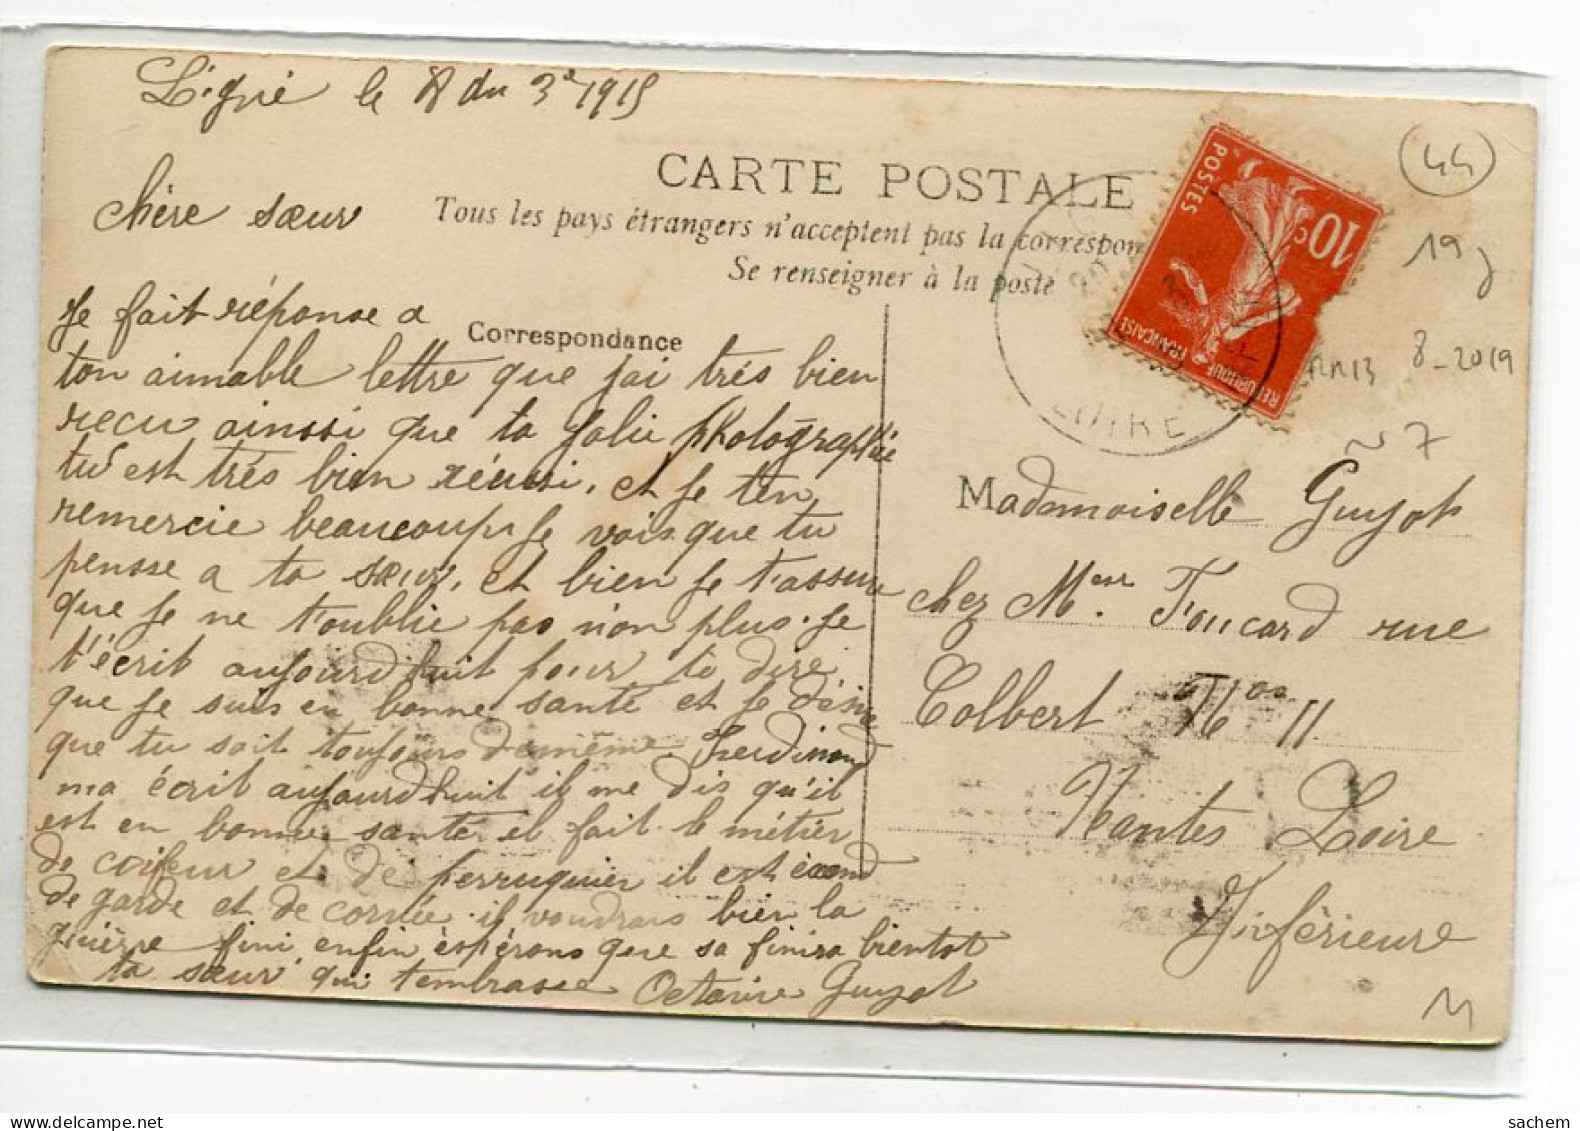 Ligné le 8 du 3e 1915
CARTE POSTALE
Tous les pays étrangers n'acceptent pas la correspon
Se renseigner à la poste
Correspondance
chère sœur
Je fait réponse a
ton aimable lettre que j'ai trés bien
recu ainssi que ta Jolie photographie
tu est trés bien réussi, et Je ten
remercie beaucoup. Je vois que tu
pensse a ta sœur, et bien Je t'assure
que Je ne t'oublie pas n'on plus. Je
t'écrit aujourd'huit pour te dire
que Je suis en bonne santé et Je désire
que tu soit toujours de même. Ferdinand
ma écrit aujourd'huit il me dis qu'il
est en bonne santé et fait le métier
de coifeur et de perruquier il est éxend
de garde et de corvée. il voudrais bien la
guièrre fini, enfin èspérons que sa finira bientot
ta sœur qui t'embrasse Octavie Guyot
POSTES
10c
REPUBLIQUE FRANÇAISE
Mademoiselle Guyot
chez Meur. Foucard rue
Colbert Nos 11
Nantes Loire
Inférieure
44
19 j
AA13 8-2019
~ 7
M
sachem